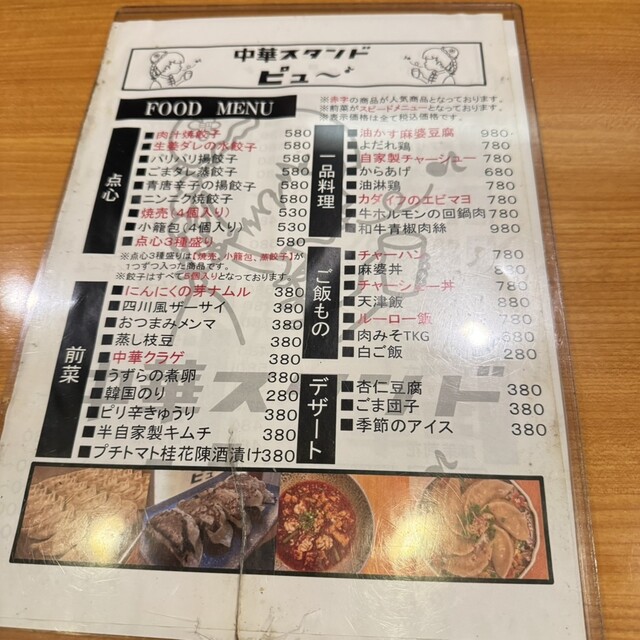 中華スタンド
ピュ〜♪
FOOD MENU
※赤字の商品が人気商品となっております。
※前菜がスピードメニューとなっております。
※表示価格は全て税込価格です。
点心
■肉汁焼餃子 580
■生姜ダレの水餃子 580
■パリパリ揚餃子 580
■ごまダレ蒸餃子 580
■青唐辛子の揚餃子 580
■ニンニク焼餃子 580
■焼売(4個入り) 530
■小籠包(4個入り) 530
■点心3種盛り 580
※点心3種盛りは【焼売、小籠包、蒸餃子】が
1つずつ入った商品です。
※餃子はすべて5個入りとなっております。
前菜
■にんにくの芽ナムル 380
■四川風ザーサイ 380
■おつまみメンマ 380
■蒸し枝豆 380
■中華クラゲ 380
■うずらの煮卵 380
■韓国のり 280
■ピリ辛きゅうり 380
■半自家製キムチ 380
■プチトマト桂花陳酒漬け 380
一品料理
■油かす麻婆豆腐 980
■よだれ鶏 780
■自家製チャーシュー 780
■からあげ 680
■油淋鶏 780
■カダイフのエビマヨ 780
■牛ホルモンの回鍋肉 780
■和牛青椒肉絲 980
ご飯もの
■チャーハン 780
■麻婆丼 880
■チャーシュー丼 780
■天津飯 880
■ルーロー飯 780
■肉みそTKG
■白ご飯 280
デザート
■杏仁豆腐 380
■ごま団子 380
■季節のアイス 380
中華スタンド